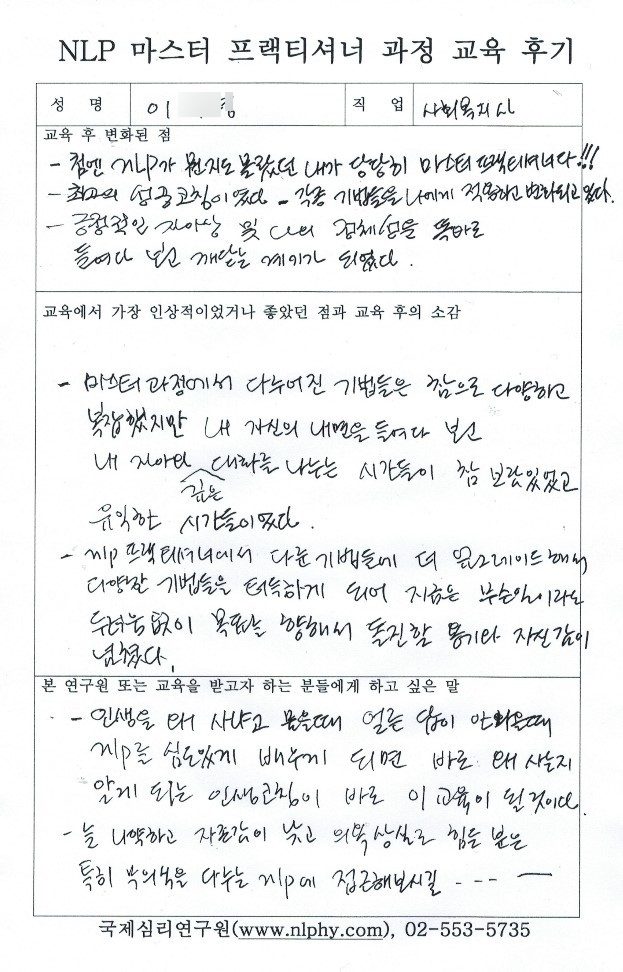 NLP 마스터 프랙티셔너 과정 교육 후기
성 명 이 직 업 사회복지사
교육 후 변화된 점
- 첨엔 NLP가 뭔지도 몰랐던 내가 당당히 마스터 프랙티셔너다!!!
- 최고의 성공코칭이였다 - 각종 기법들을 나에게 적용하고 변화되고 있다.
- 긍정적인 자아상 및 나의 정체성을 똑바로
들여다 보고 깨닫는 계기가 되었다.
교육에서 가장 인상적이었거나 좋았던 점과 교육 후의 소감
- 마스터과정에서 다누어진 기법들은 참으로 다양하고
복잡했지만 내 자신의 내면을 들여다 보고
내 자아와 대화를 나누는 시간들이 참 보람있었고
깊은
유익한 시간들이였다.
- nlp 프랙티셔너에서 다룬 기법들에 더 업그레이드해서
다양한 기법들을 터득하게 되어 지금은 무슨일이라도
두려움없이 목표를 향해서 돌진할 용기와 자신감이
넘쳤다.
본 연구원 또는 교육을 받고자 하는 분들에게 하고 싶은 말
- 인생을 왜 사냐고 물을때 얼른 답이 안나올때
nlp를 심도있게 배우게 되면 바로 왜 사는지
알게 되는 인생코칭이 바로 이 교육이 될 것이다.
- 늘 나약하고 자존감이 낮고 의욕상실로 힘든 분은
특히 무의식을 다누는 nlp에 접근해보시길 - - - ―
국제심리연구원(www.nlphy.com), 02-553-5735